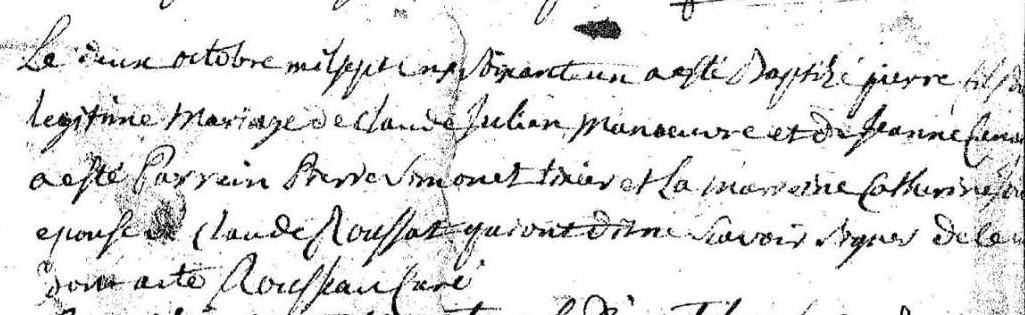 Le deux octobre mil sept cens soixant un a esté Baptizé pierre fils
legitime Mariage de Claude Julian manoeuvre et de Jeanne
a esté Parrein Pierre Simonet tixier et La marreine Catherine
epouse de Claude Roussat qui ont dit ne savoir signer de ce
dont acte Rousseau Curé